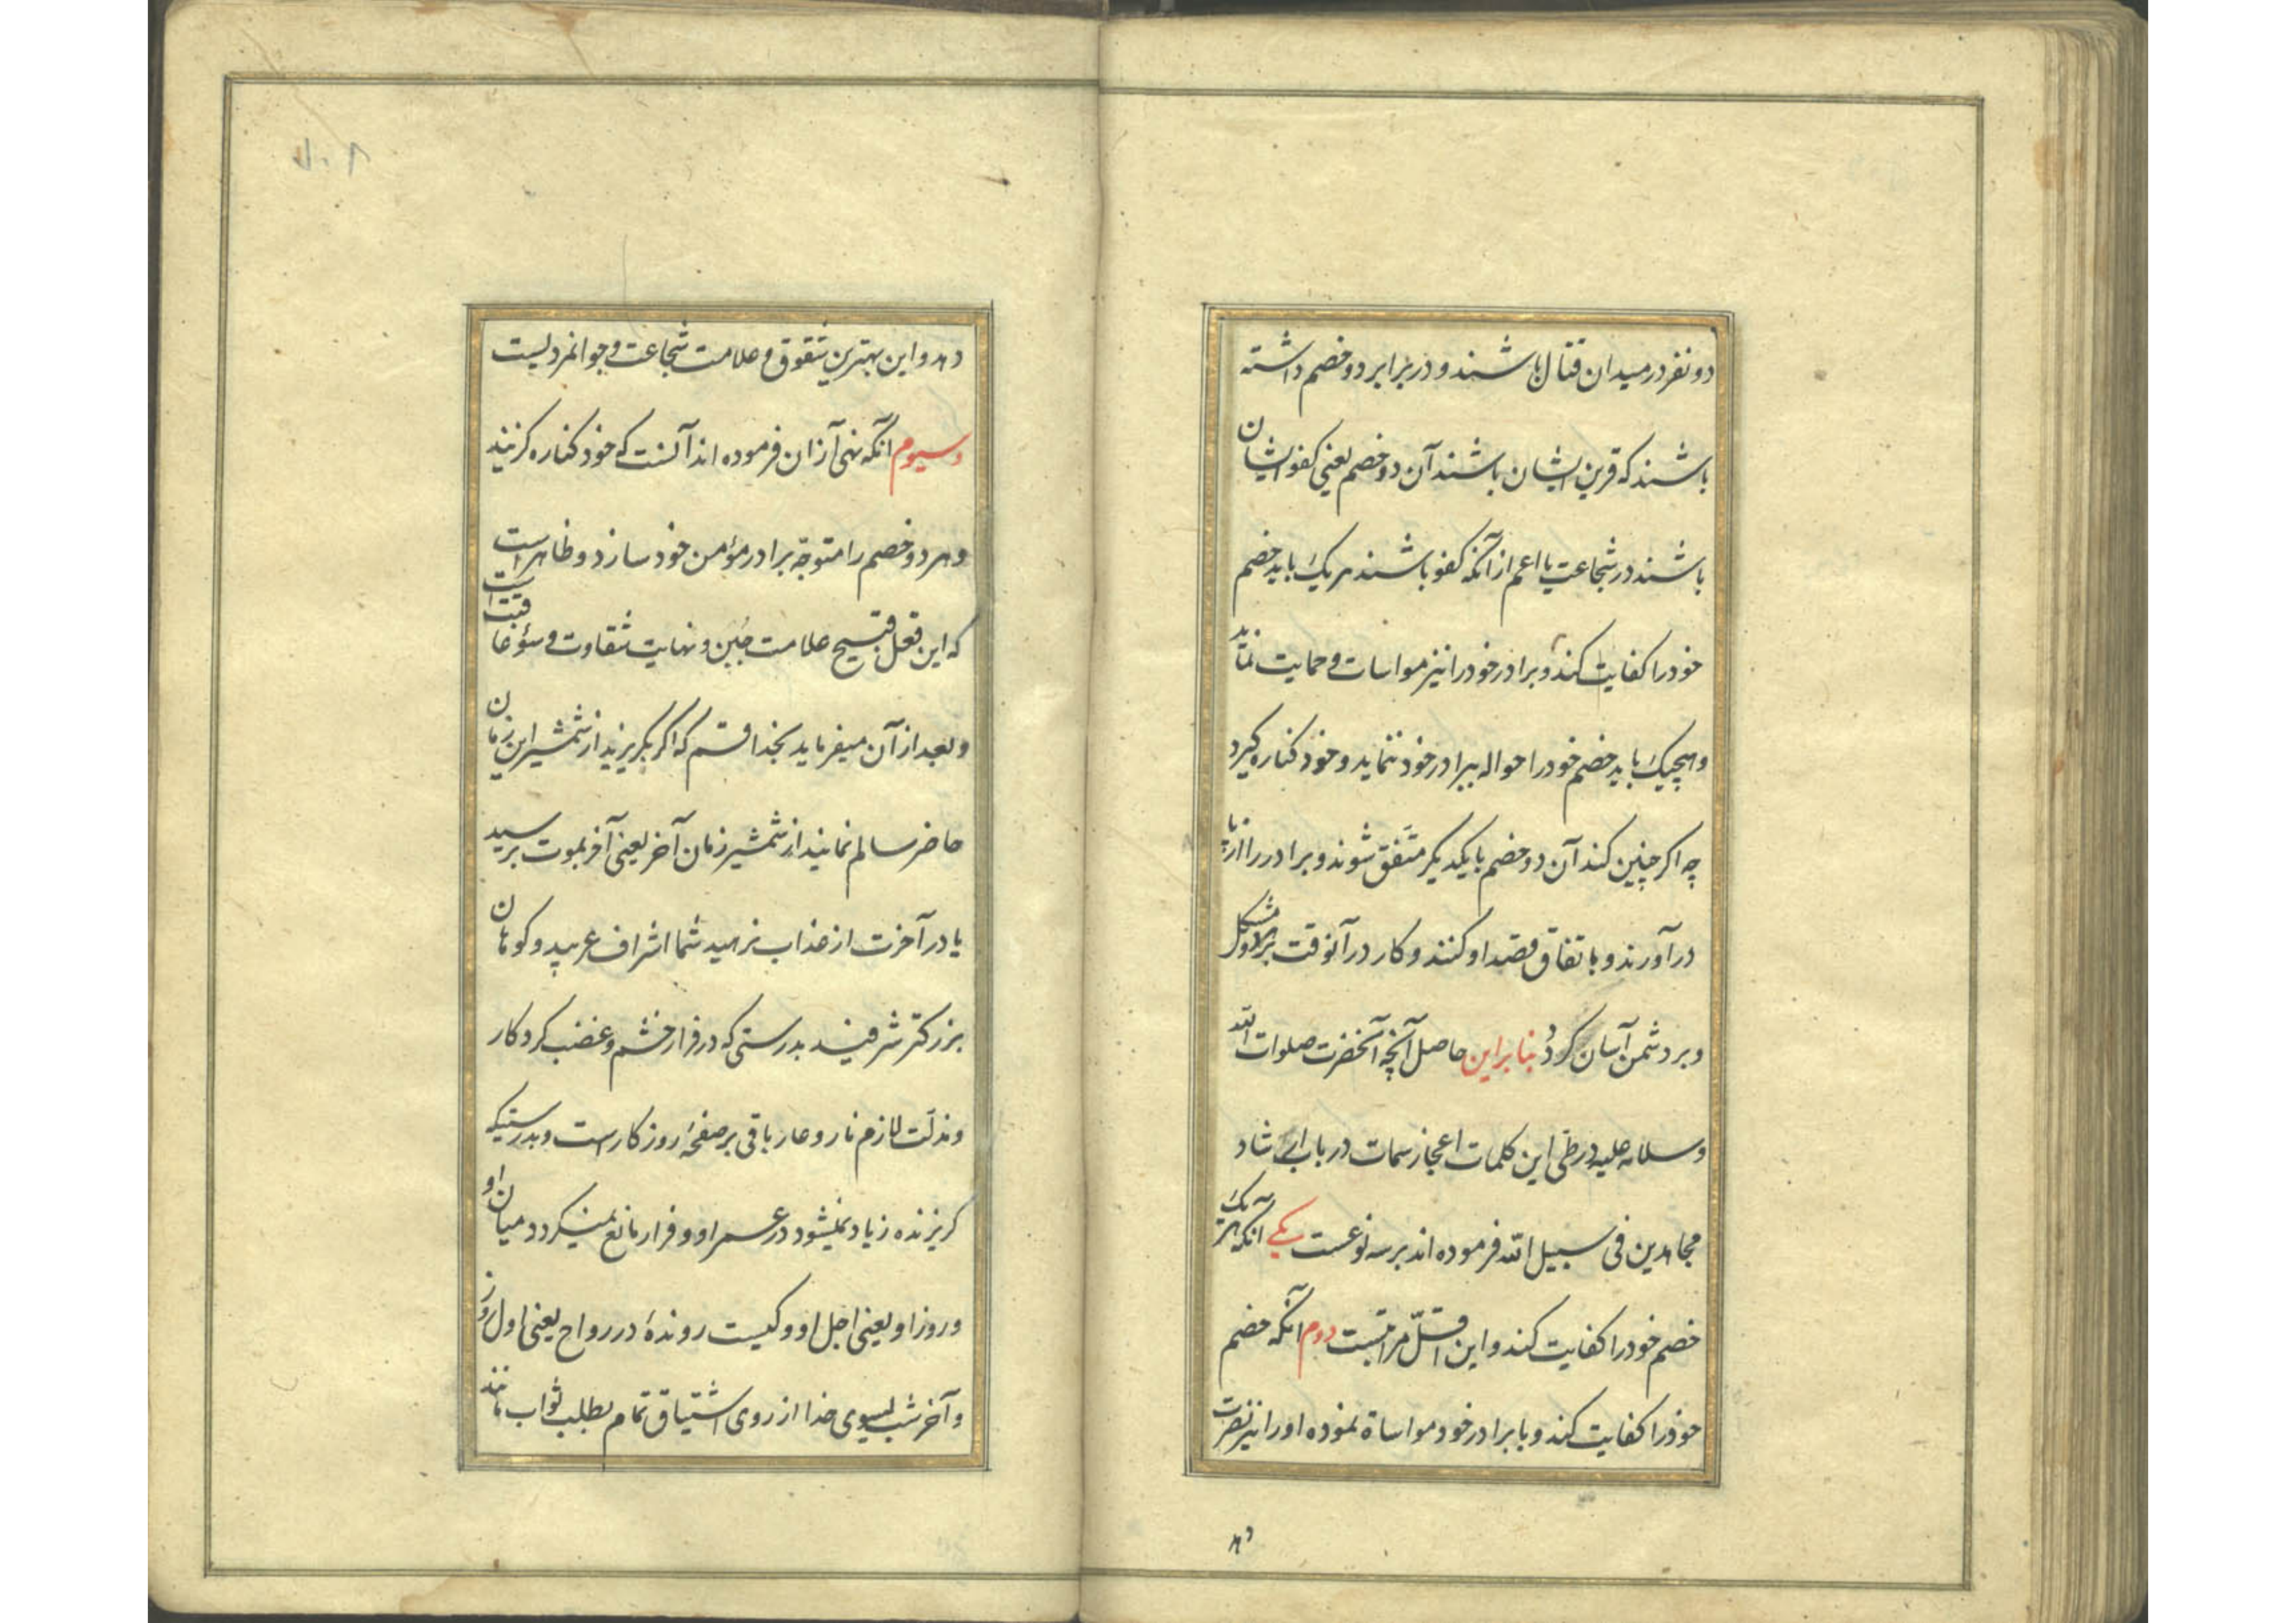 دو نفر در میدان قتال باشند و در برابر دو خصم داشته
باشند که قرین ایشان باشند آن دو خصم یعنی کفو ایشان
باشند در شجاعت یا اعم از آنکه کفو باشند هر یک باید خصم
خود را کفایت کند و برادر خود را نیز مواسات و حمایت نماید
و هیچیک باید خصم خود را حواله ببرادر خود ننماید و خود کناره گیرد
چه اکر چنین کند آن دو خصم با یکدیگر متفق شوند و برادر را از پا
درآورند و باتفاق قصد او کنند و کار در آنوقت بر او مشکل
و بر دشمن آسان کردد بنابراین حاصل آنچه آنحضرت صلوات الله
و سلامه علیه در طی این کلمات اعجاز سمات در باب ارشاد
مجاهدین فی سبیل الله فرموده اند بر سه نوعست یکی آنکه هر یک
خصم خود را کفایت کند و این اقل مراتبست دوم آنکه خصم
خود را کفایت کند و با برادر خود مواساة نموده او را نیز نصرت
دهد
دهد و این بهترین شقوق و علامت شجاعت و جوانمردیست
و سیوم آنکه نهی از آن فرموده اند آنست که خود کناره کزیند
و هر دو خصم را متوجه برادر مؤمن خود سازد و ظاهر است
که این فعل قبیح علامت جبن و نهایت شقاوت و سؤ عاقبت است
و بعد از آن میفرماید بخدا قسم که اکر بکریزید از شمشیر این زمان
حاضر سالم نمانید از شمشیر زمان آخر یعنی آخر بموت برسید
یا در آخرت از عذاب نرهید شما اشراف عربید و کوهان
بزرکتر شرفید بدرستی که در فرار خشم و غضب کردکار
و مذلت لازم نار و عار باقی بر صفحهٔ روزکار است و بدرستیکه
کریزنده زیاد نمیشود در عمر او و فرار مانع نمیکردد میان او
و روز او یعنی اجل او و کیست روندهٔ در رواح یعنی اول روز
و آخر شب بسوی خدا از روی اشتیاق تمام بطلب ثواب مانند